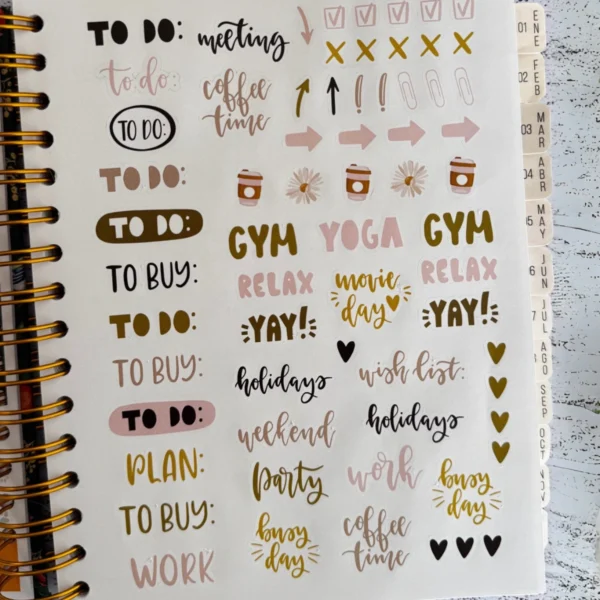 TO DO:
meeting
to do:
coffee
time
TO DO:
TO DO:
TO DO:
GYM YOGA GYM
TO BUY:
RELAX
movie
day
RELAX
TO DO:
YAY!
YAY!
TO BUY:
holidays
wish list:
TO DO:
weekend
holidays
PLAN:
party
work
busy
day
TO BUY:
busy
day
coffee
time
WORK
01 ENE
02 FEB
03 MAR
04 ABR
05 MAY
6 JUN
7 JUL
AGO
SEP
OCT